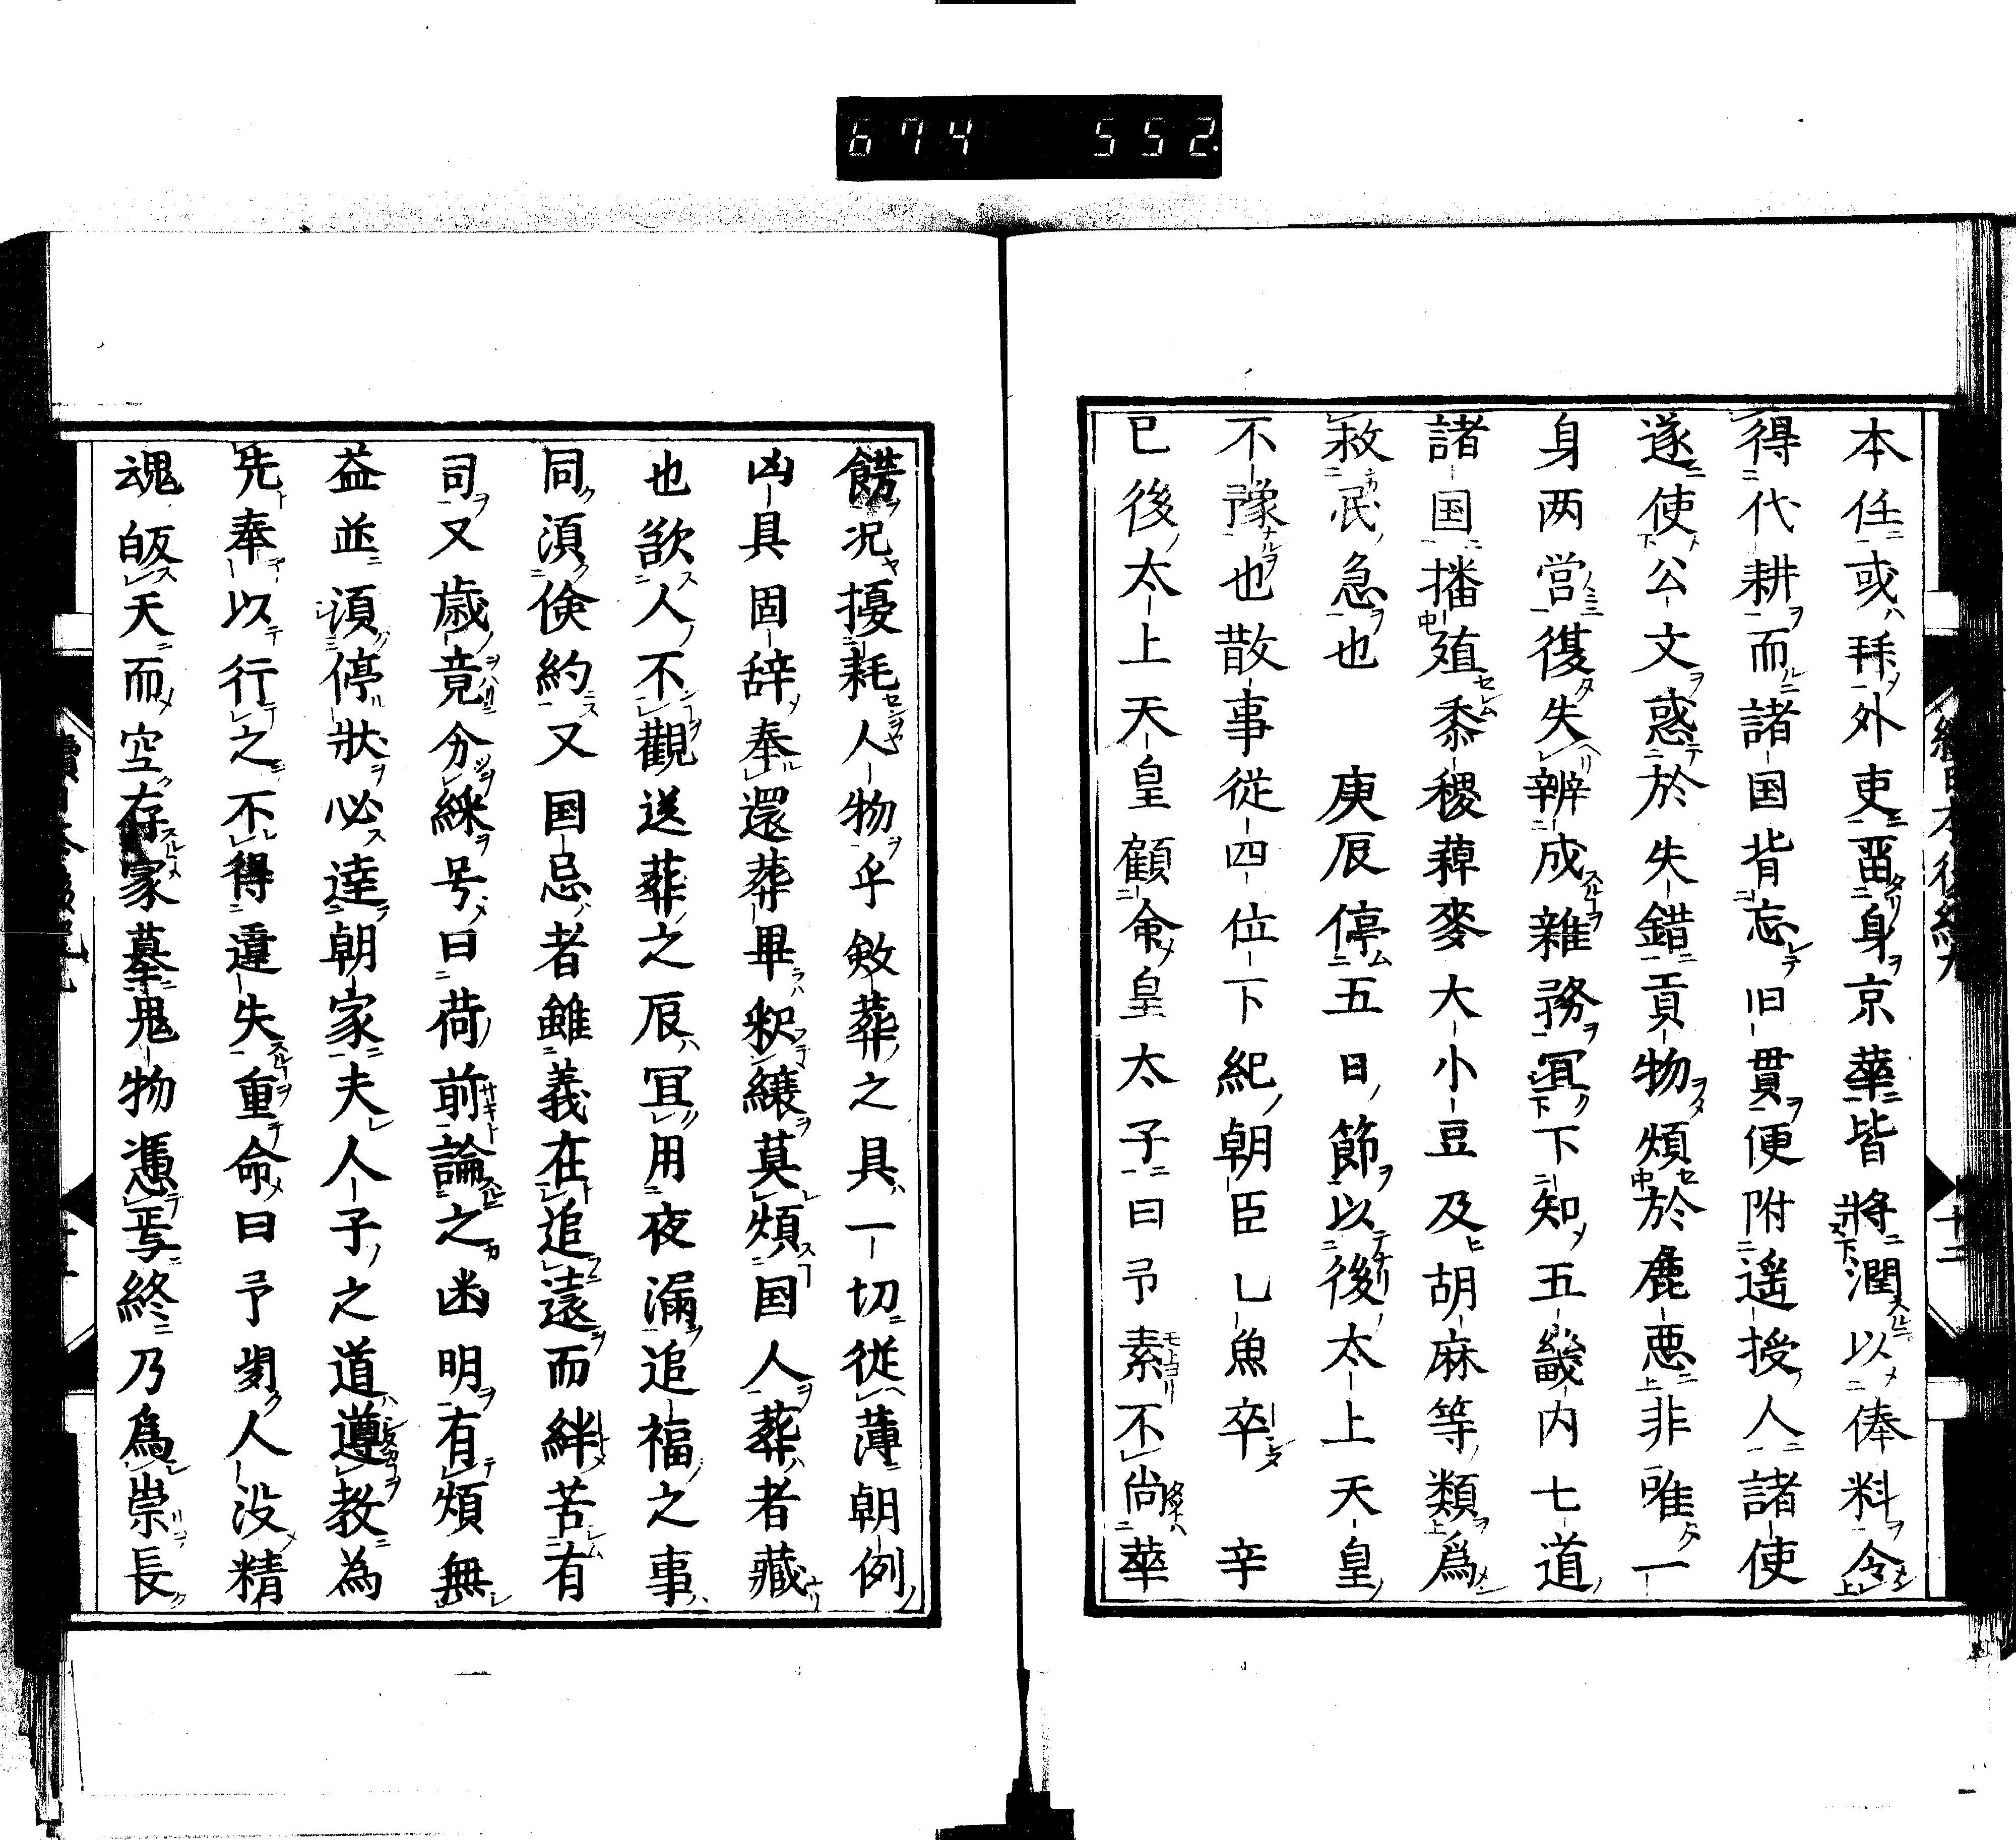 674 552
本任或拜外吏畱身京華皆將潤以俸料令
得代耕而諸国背忘旧貫便附遥授人諸使
遂使公文惑於失錯貢物煩於麁悪非唯一
身両営復失辨成雑務冝下知五畿内七道
諸国播殖黍稷薭麥大小豆及胡麻等類爲
救民急也　庚辰停五日節以後太上天皇
不豫也散事従四位下紀朝臣乚魚卒　辛
已後太上天皇顧命皇太子曰予素不尚華
餝况擾耗人物乎斂葬之具一切従薄朝例
凶具固辞奉還葬畢釈縗莫煩国人葬者藏
也欲人不觀送葬之辰冝用夜漏追福之事
同湏倹約又国忌者雖義在追遠而絆苦有
司又歳竟分綵号曰荷前論之幽明有煩無
益並湏停狀必達朝家夫人子之道遵教為
先奉以行之不得違失重命曰予聞人没精
魂皈天而空存冢墓鬼物憑焉終乃爲崇長
續日本後紀九
十二